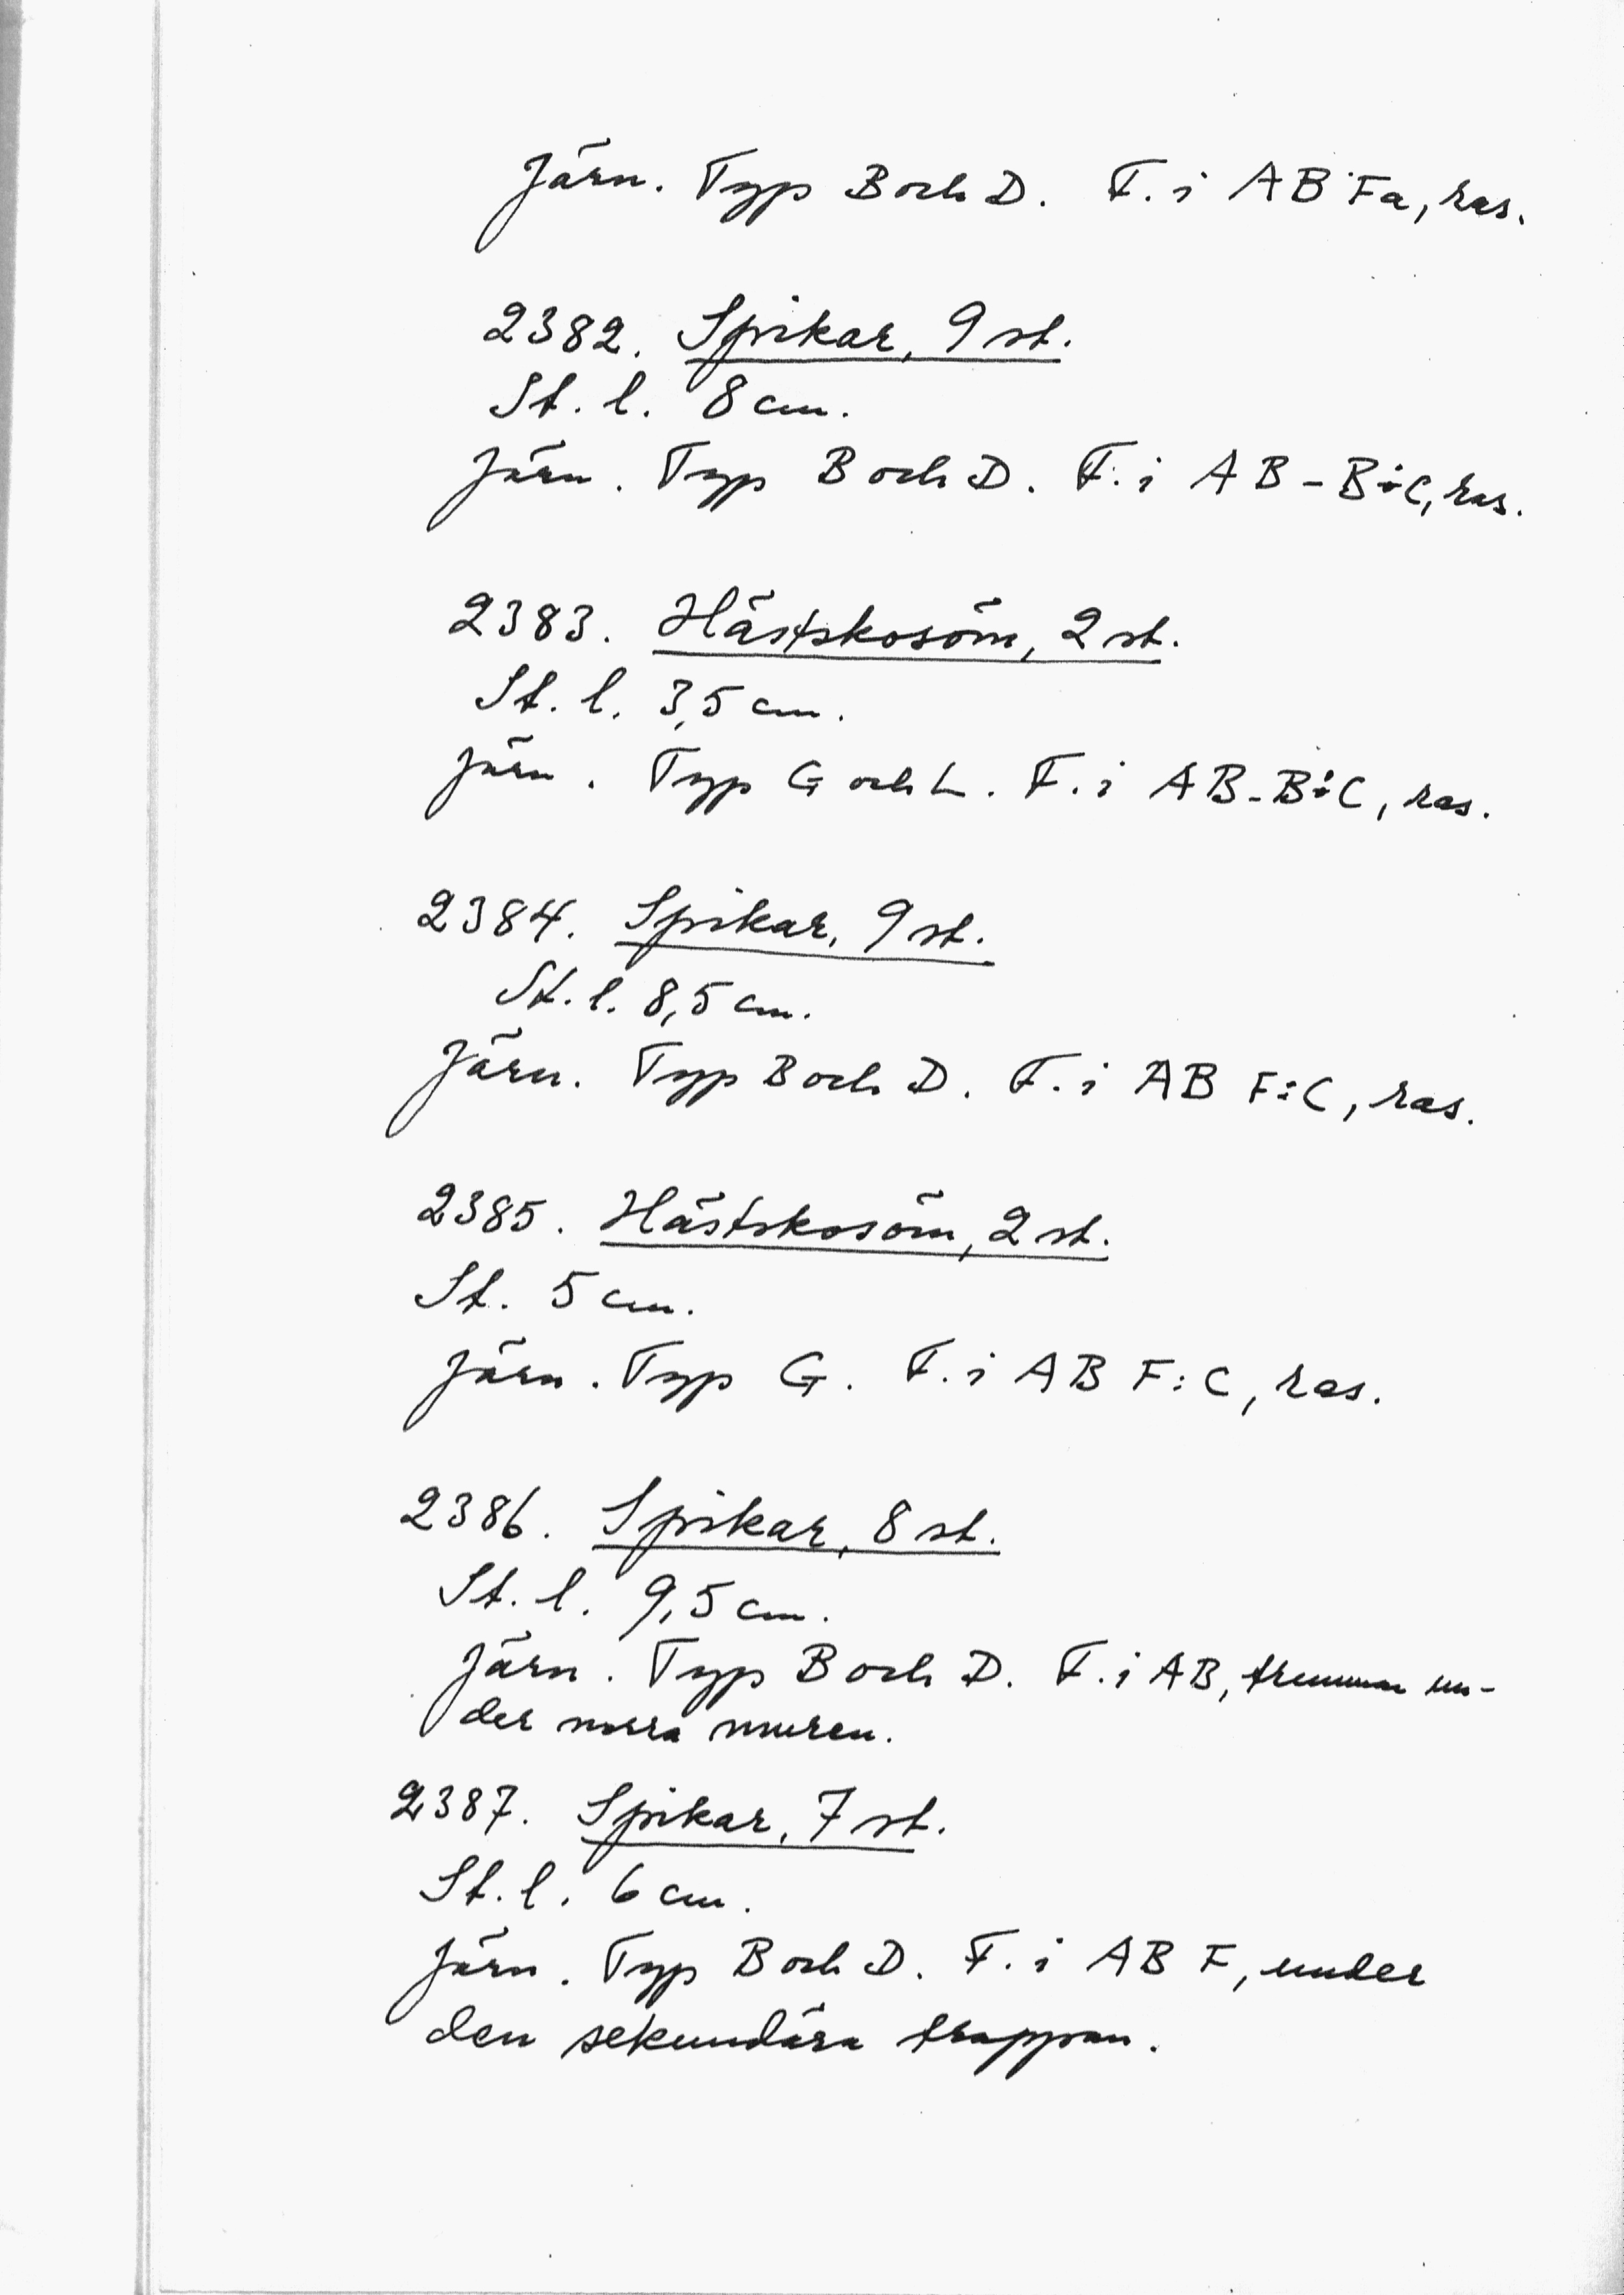 Järn. Typ B och D. F. i AB Fa, ras.
2382. Spikar, 9 st.
St. l. 8 cm.
Järn. Typ B och D. F. i AB-B:C, ras.
2383. Hästskosöm, 2 st.
St. l. 3,5 cm.
Järn. Typ G och L. F. i AB-B:C, ras.
2384. Spikar, 9 st.
St. l. 8,5 cm.
Järn. Typ B och D. F. i AB F:C, ras.
2385. Hästskosöm, 2 st.
St. 5 cm.
Järn. Typ G. F. i AB F:C, ras.
2386. Spikar, 8 st.
St. l. 9,5 cm.
Järn. Typ B och D. F. i AB, trumman un-
der norra muren.
2387. Spikar, 7 st.
St. l. 6 cm.
Järn. Typ B och D. F. i AB F, under
den sekundära trappan.